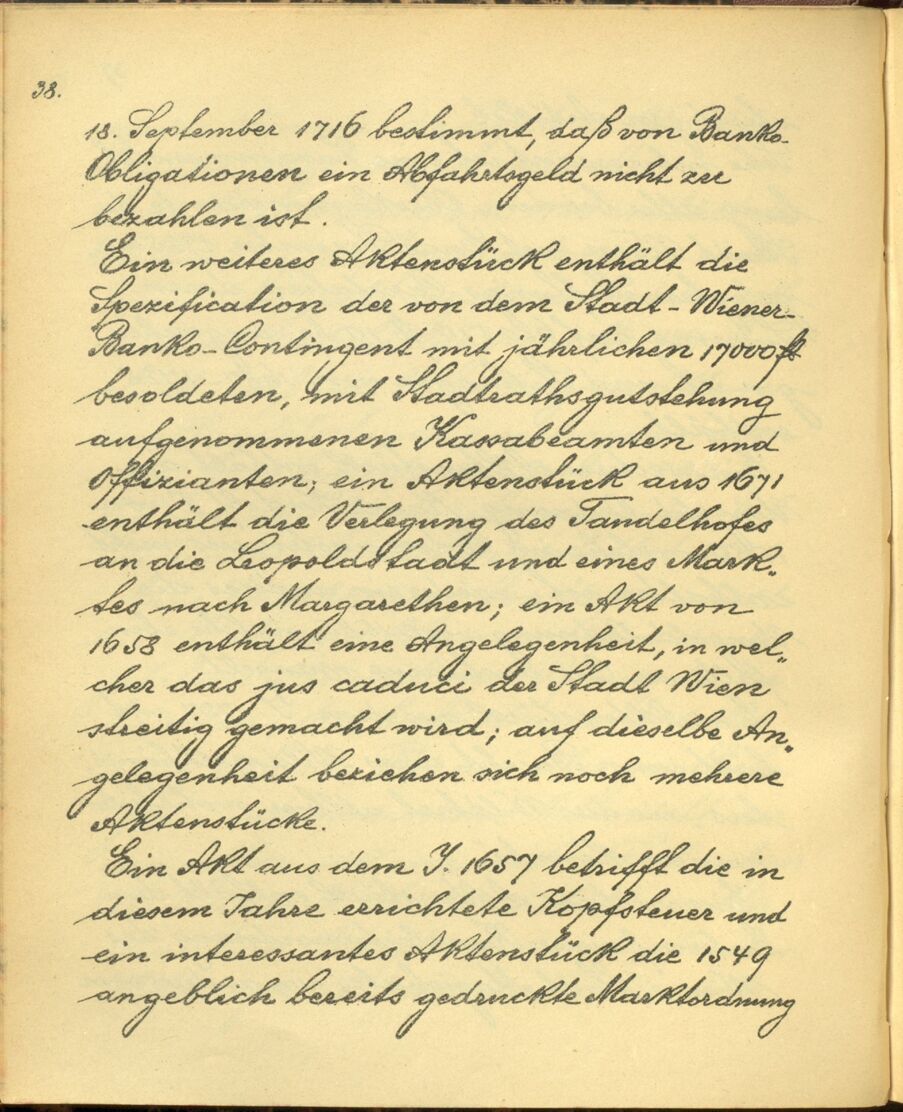 38.
18. September 1716 bestimmt, daß von Banko-
Obligationen ein Abfahrtsgeld nicht zu
bezahlen ist.
Ein weiteres Aktenstück enthält die
Spezification der von dem Stadt-Wiener-
Banko-Contingent mit jährlichen 17000 fl
besoldeten, mit Stadtrathsgutstehung
aufgenommenen Kassabeamten und
Offizianten; ein Aktenstück aus 1671
enthält die Verlegung des Tandelhofes
an die Leopoldstadt und eines Mark„
tes nach Margarethen; ein Akt von
1658 enthält eine Angelegenheit, in wel„
cher das jus caduci der Stadt Wien
streitig gemacht wird; auf dieselbe An„
gelegenheit beziehen sich noch mehrere
Aktenstücke.
Ein Akt aus dem J. 1657 betrifft die in
diesem Jahre errichtete Kopfsteuer und
ein interessantes Aktenstück die 1549
angeblich bereits gedruckte Marktordnung